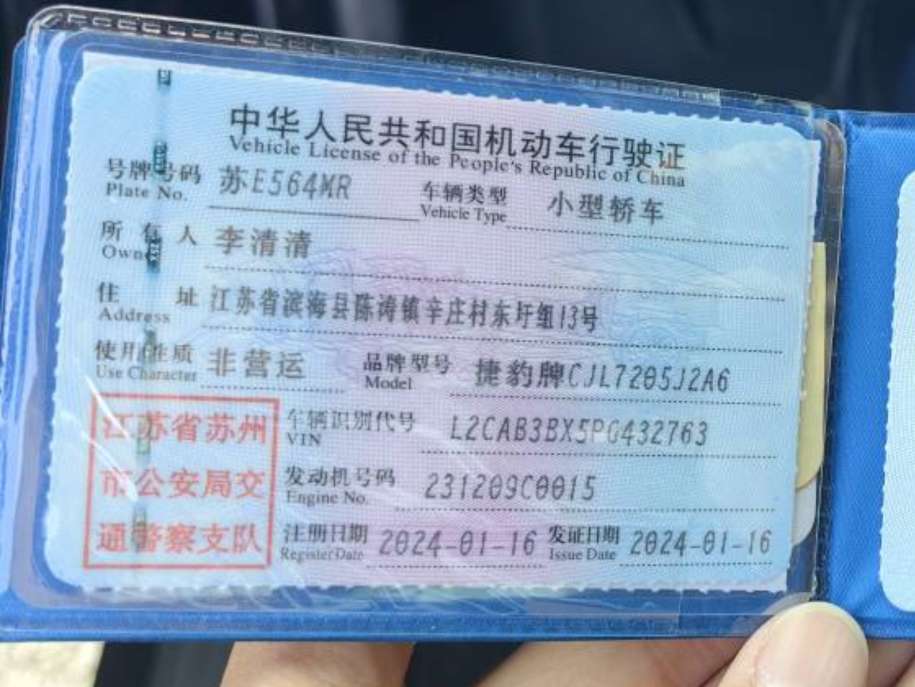 中华人民共和国机动车行驶证
Vehicle License of the People's Republic of China
号牌号码 苏E564MR 车辆类型 小型轿车
Plate No. Vehicle Type
所有人 李清清
Owner
住址 江苏省滨海县陈涛镇辛庄村东圩组13号
Address
使用性质 非营运 品牌型号 捷豹牌CJL7205J2A6
Use Character Model
江苏省苏州 车辆识别代号 L2CAB3BX5PG432763
VIN
市公安局交 发动机号码 231209C0015
Engine No.
通警察支队 注册日期 2024-01-16 发证日期 2024-01-16
Register Date Issue Date